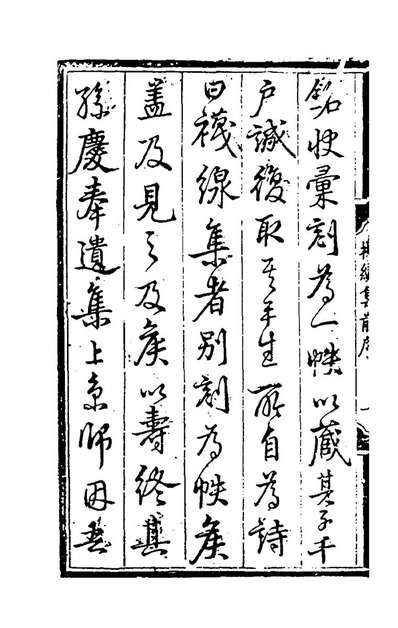 銘状彙刻為一帙以蔵其子千
户誠復取其平生所自為詩
曰襪線集者别刻為帙矦
盖及見之及矦以壽終其
孫慶奉遺集上京師因吾
襪線集前序